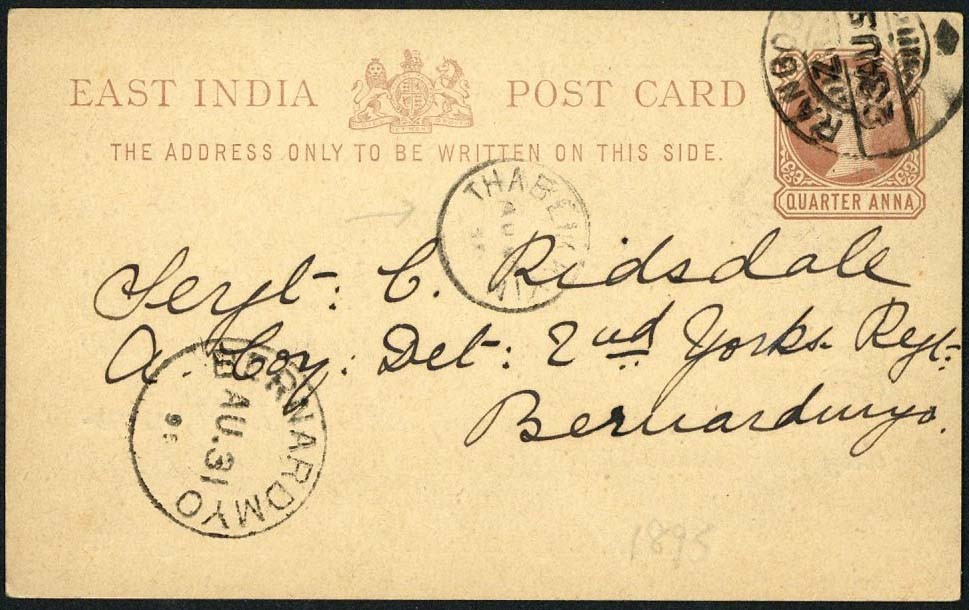 EAST INDIA POST CARD
THE ADDRESS ONLY TO BE WRITTEN ON THIS SIDE.
QUARTER ANNA
Sergt: C. Ridsdale
A. Coy: Det: 2nd Yorks. Regt:
Bernardmyo.
BERNARDMYO
AU.31
95
1895